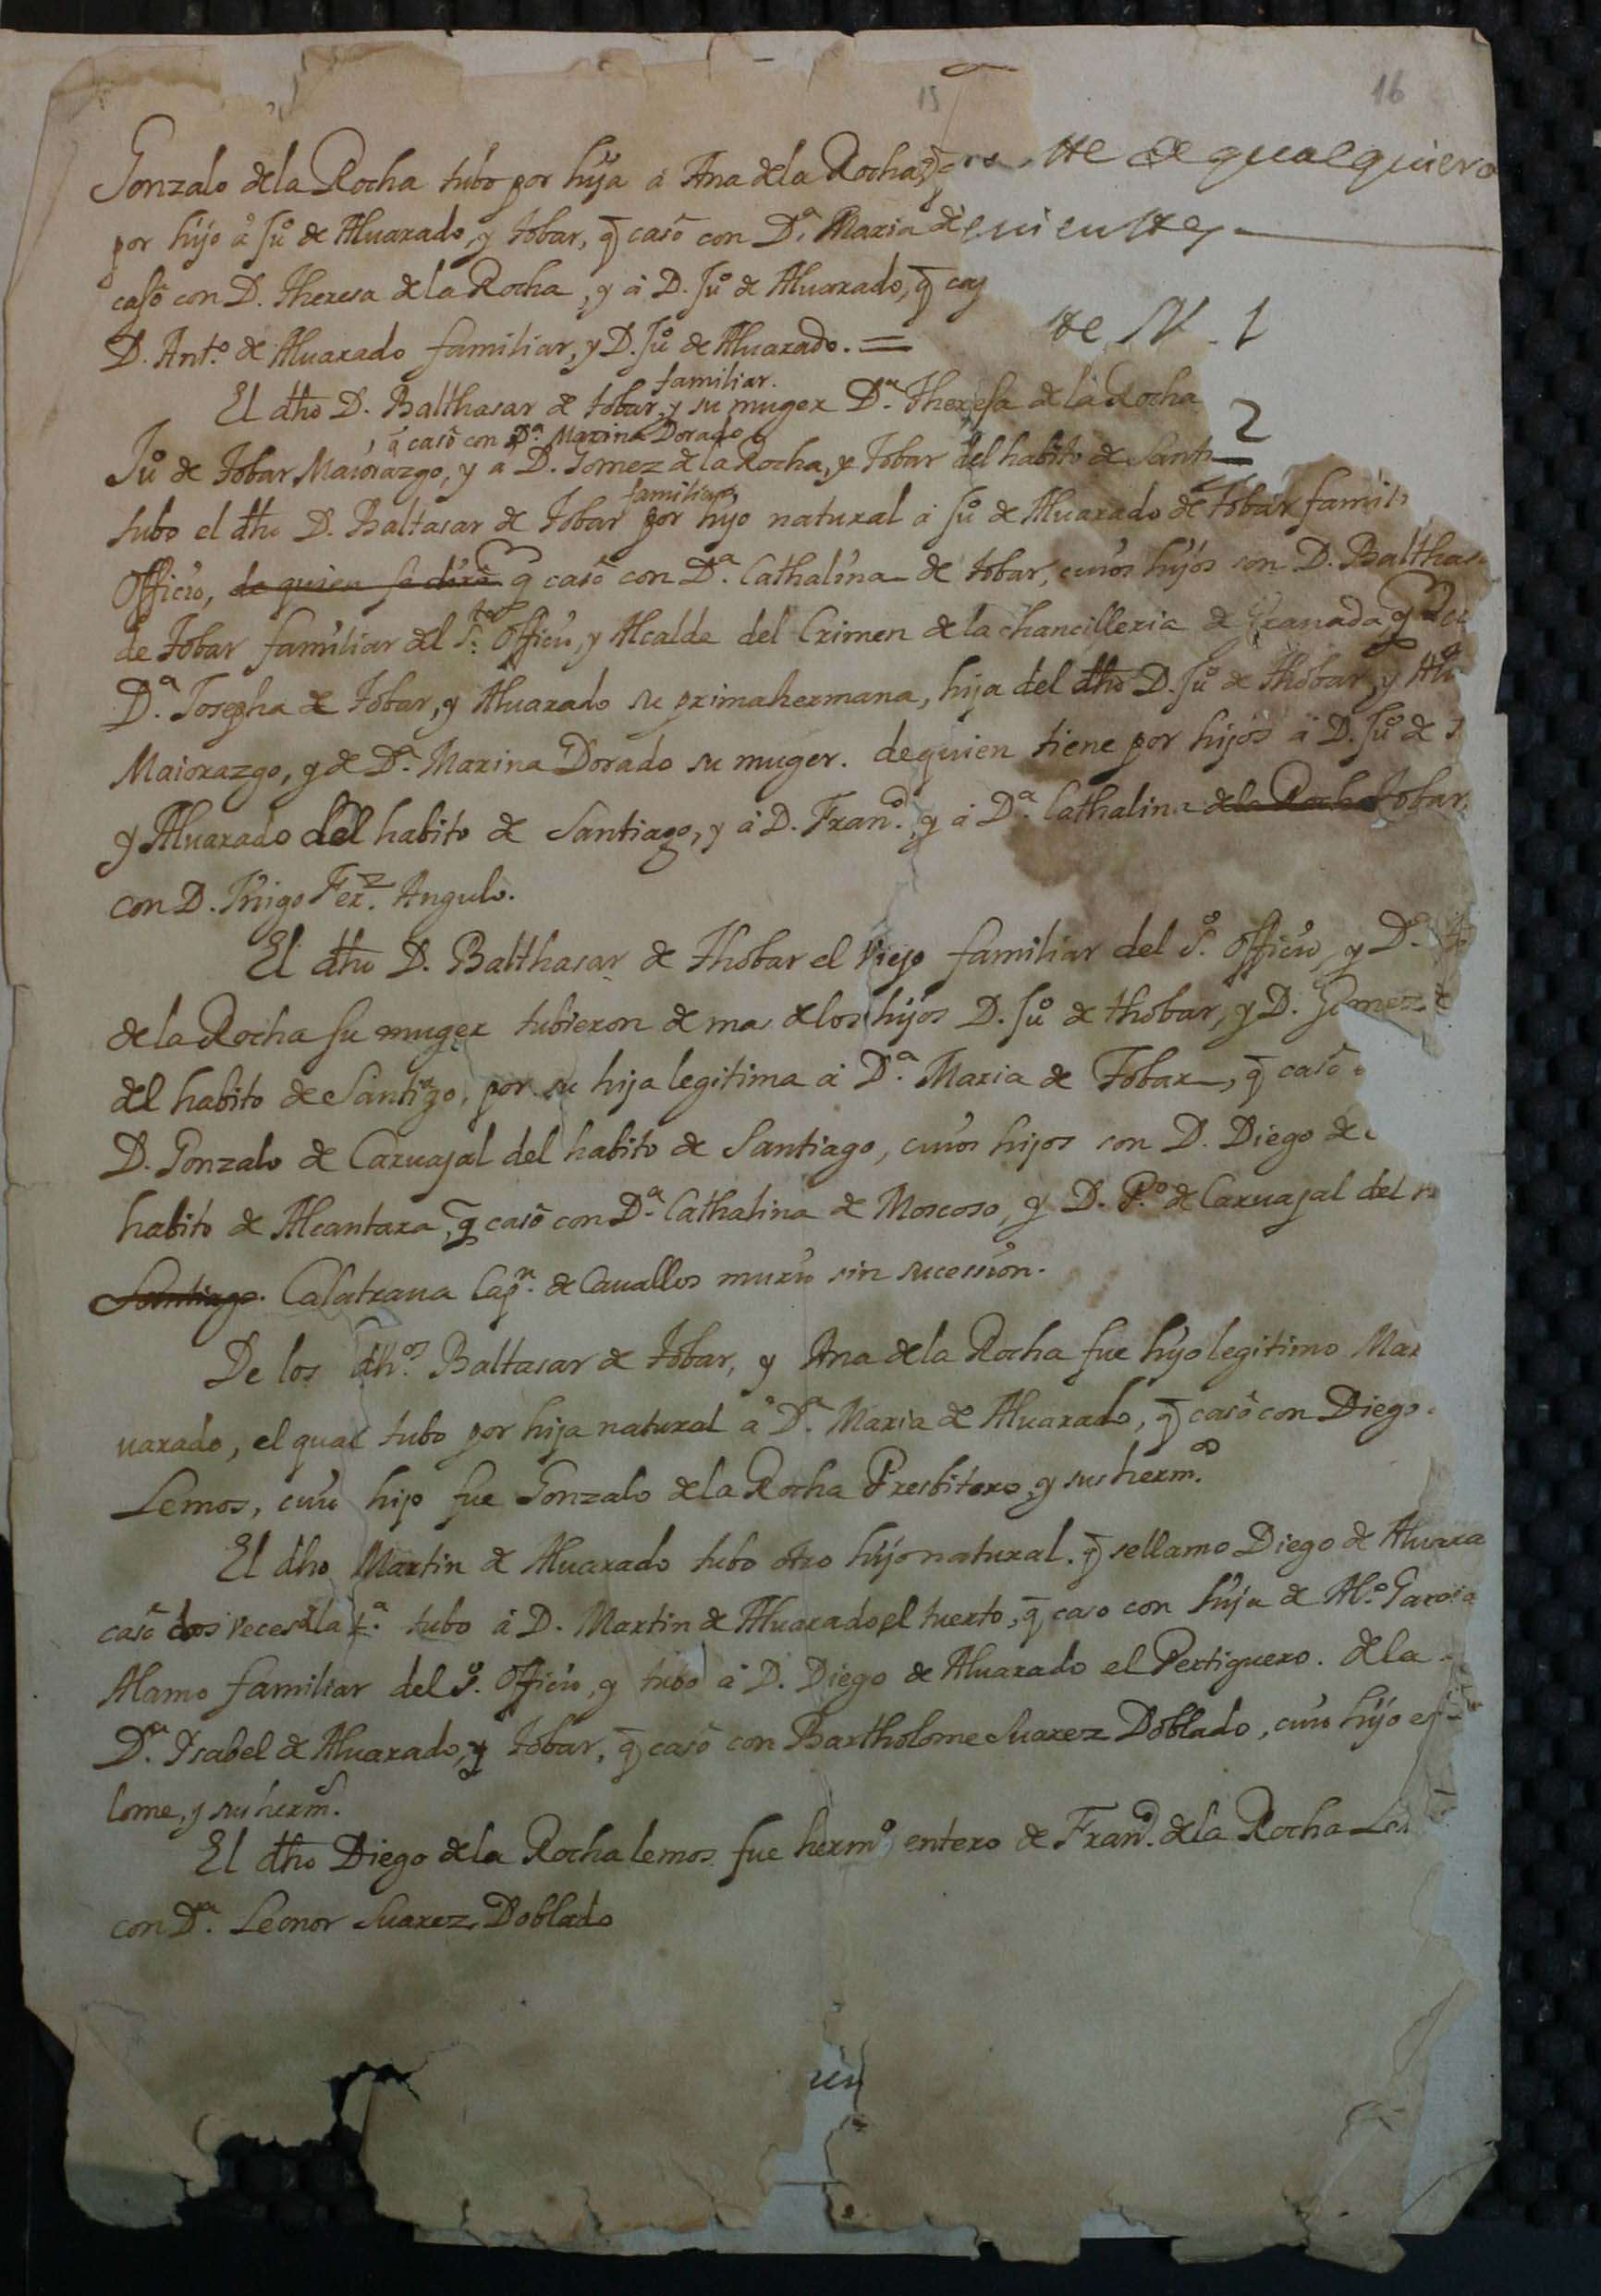 15 16
Gonzalo de la Rocha tubo por hija â Ana de la Rocha, te de qualquiera
por hijo â Juº de Aluarado, y tobar, q̃ casô con D.ª Maria
casô con D. Theresa de la Rocha, y â D. Juº de Aluarado, q̃ cas
D. Ant.º de Aluarado familiar, y D. Juº de Aluarado. = de N. 1
familiar.
El dho D. Balthasar de tobar, y su muger D.ª Theresa de la Rocha 2
q̃ casô con D.ª Marina Dorado
Juº de tobar Maiorazgo, y a D. Gomez de la Rocha, y tobar del habito de Santi
familiar
tubo el dho D. Baltasar de tobar por hijo natural â Juº de Aluarado de tobar famili
Officio, de quien se dira q̃ casô con D.ª Cathalina de tobar, cuios hijos son D. Balthas
de tobar familiar del S.to Officio, y Alcalde del Crimen de la chancilleria de Granada, q̃
D.ª Josepha de tobar, y Aluarado su primahermana, hija del dho D. Juº de thobar, y Alu
Maiorazgo, y de D.ª Marina Dorado su muger. de quien tiene por hijos â D. Juº de t
y Aluarado del habito de Santiago, y â D. Fran.co, y â D.ª Cathalina de la Rocha tobar,
con D. Iñigo Fer.z Angulo.
El dho D. Balthasar de thobar el viejo familiar del S.º Officio, y D.ª
de la Rocha su muger tubieron de mas de los hijos D. Juº de thobar, y D. Gomez
del habito de Santiago, por su hija legitima â D.ª Maria de Tobar, q̃ casô
D. Gonzalo de Caruajal del habito de Santiago, cuios hijos son D. Diego de
habito de Alcantara, q̃ casô con D.ª Cathalina de Moscoso, y D. P.º de Caruajal del
Santiago. Calatraua Cap.n de Cauallos muriô sin sucession.
De los dh.os Baltasar de tobar, y Ana de la Rocha fue hijo legitimo Mar
uarado, el qual tubo por hija natural â D.ª Maria de Aluarado, q̃ casô con Diego
Lemos, cuio hijo fue Gonzalo de la Rocha Presbitero, y sus herm.os
El dho Martin de Aluarado tubo otro hijo natural. q̃ se llamo Diego de Aluara
casô dos veces de la 1.ª tubo â D. Martin de Aluarado el tuerto, q̃ caso con hija de Al.º Garcia
Alamo familiar del S.º Officio, y tubo â D. Diego de Aluarado el Pertiguero. de la
D.ª Ysabel de Aluarado, y tobar, q̃ casô con Bartholome Suarez Doblado, cuio hijo es
lome, y sus herm.s
El dho Diego de la Rocha lemos fue herm.º entero de Fran.co de la Rocha Le
con D.ª Leonor Suarez Doblado